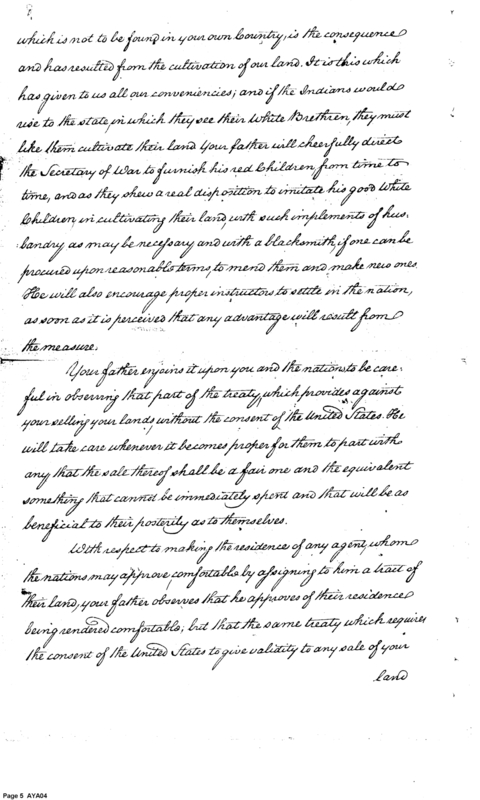 8
which is not to be found in your own Country, is the consequence
and has resulted from the cultivation of our land. It is this which
has given to us all our conveniencies; and if the Indians would
rise to the state, in which they see their White Brethren, they must
like them cultivate their land Your father will cheerfully direct
the Secretary of War to furnish his red Children, from time to
time, and as they shew a real disposition to imitate his good White
Children, in cultivating their land, with such implements of hus-
bandry as may be necessary and with a blacksmith, if one can be
procured upon reasonable terms, to mend them and make new ones.
He will also encourage proper instructors to settle in the nation,
as soon as it is perceived that any advantage will result from
the measure.
Your father enjoins it upon you and the nations to be care-
ful in observing that part of the treaty, which provides against
your selling your lands, without the consent of the United States. He
will take care whenever it becomes proper for them to part with
any that the sale thereof shall be a fair one and the equivalent
something that cannot be immediately spent and that will be as
beneficial to their posterity as to themselves.
With respect to making the residence of any agent, whom
the nations may approve comfortable by assigning to him a tract of
their land, your father observes that he approves of their residence
being rendered comfortable; but that the same treaty which requires
the consent of the United States to give validity to any sale of your
land
Page 5 AYA04